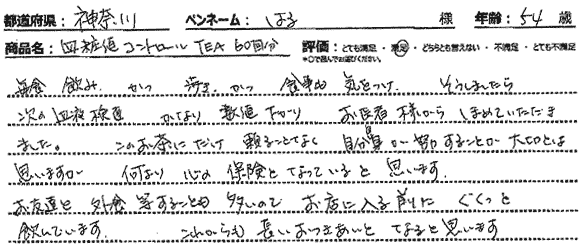 都道府県: 神奈川 ペンネーム: はる 様 年齢: 54 歳
商品名: 血糖値コントロールTEA 60回分 評価: とても満足・満足・どちらとも言えない・不満足・とても不満足
*○で囲んでお選びください。
毎食 飲み、かつ 歩き、かつ 食事も 気をつけ、そうしましたら
次の血液検査 かなり 数値下がり お医者様から ほめていただき
ました。 このお茶にだけ 頼ることなく 自分自身が 努力することが 大切とは
思いますが 何より 心の 保険と なっていると 思います。
お友達と 外食 等することも 多いので お店に入る前に ぐぐっと
飲んでいます。 これからも 長いおつきあいと なると思います